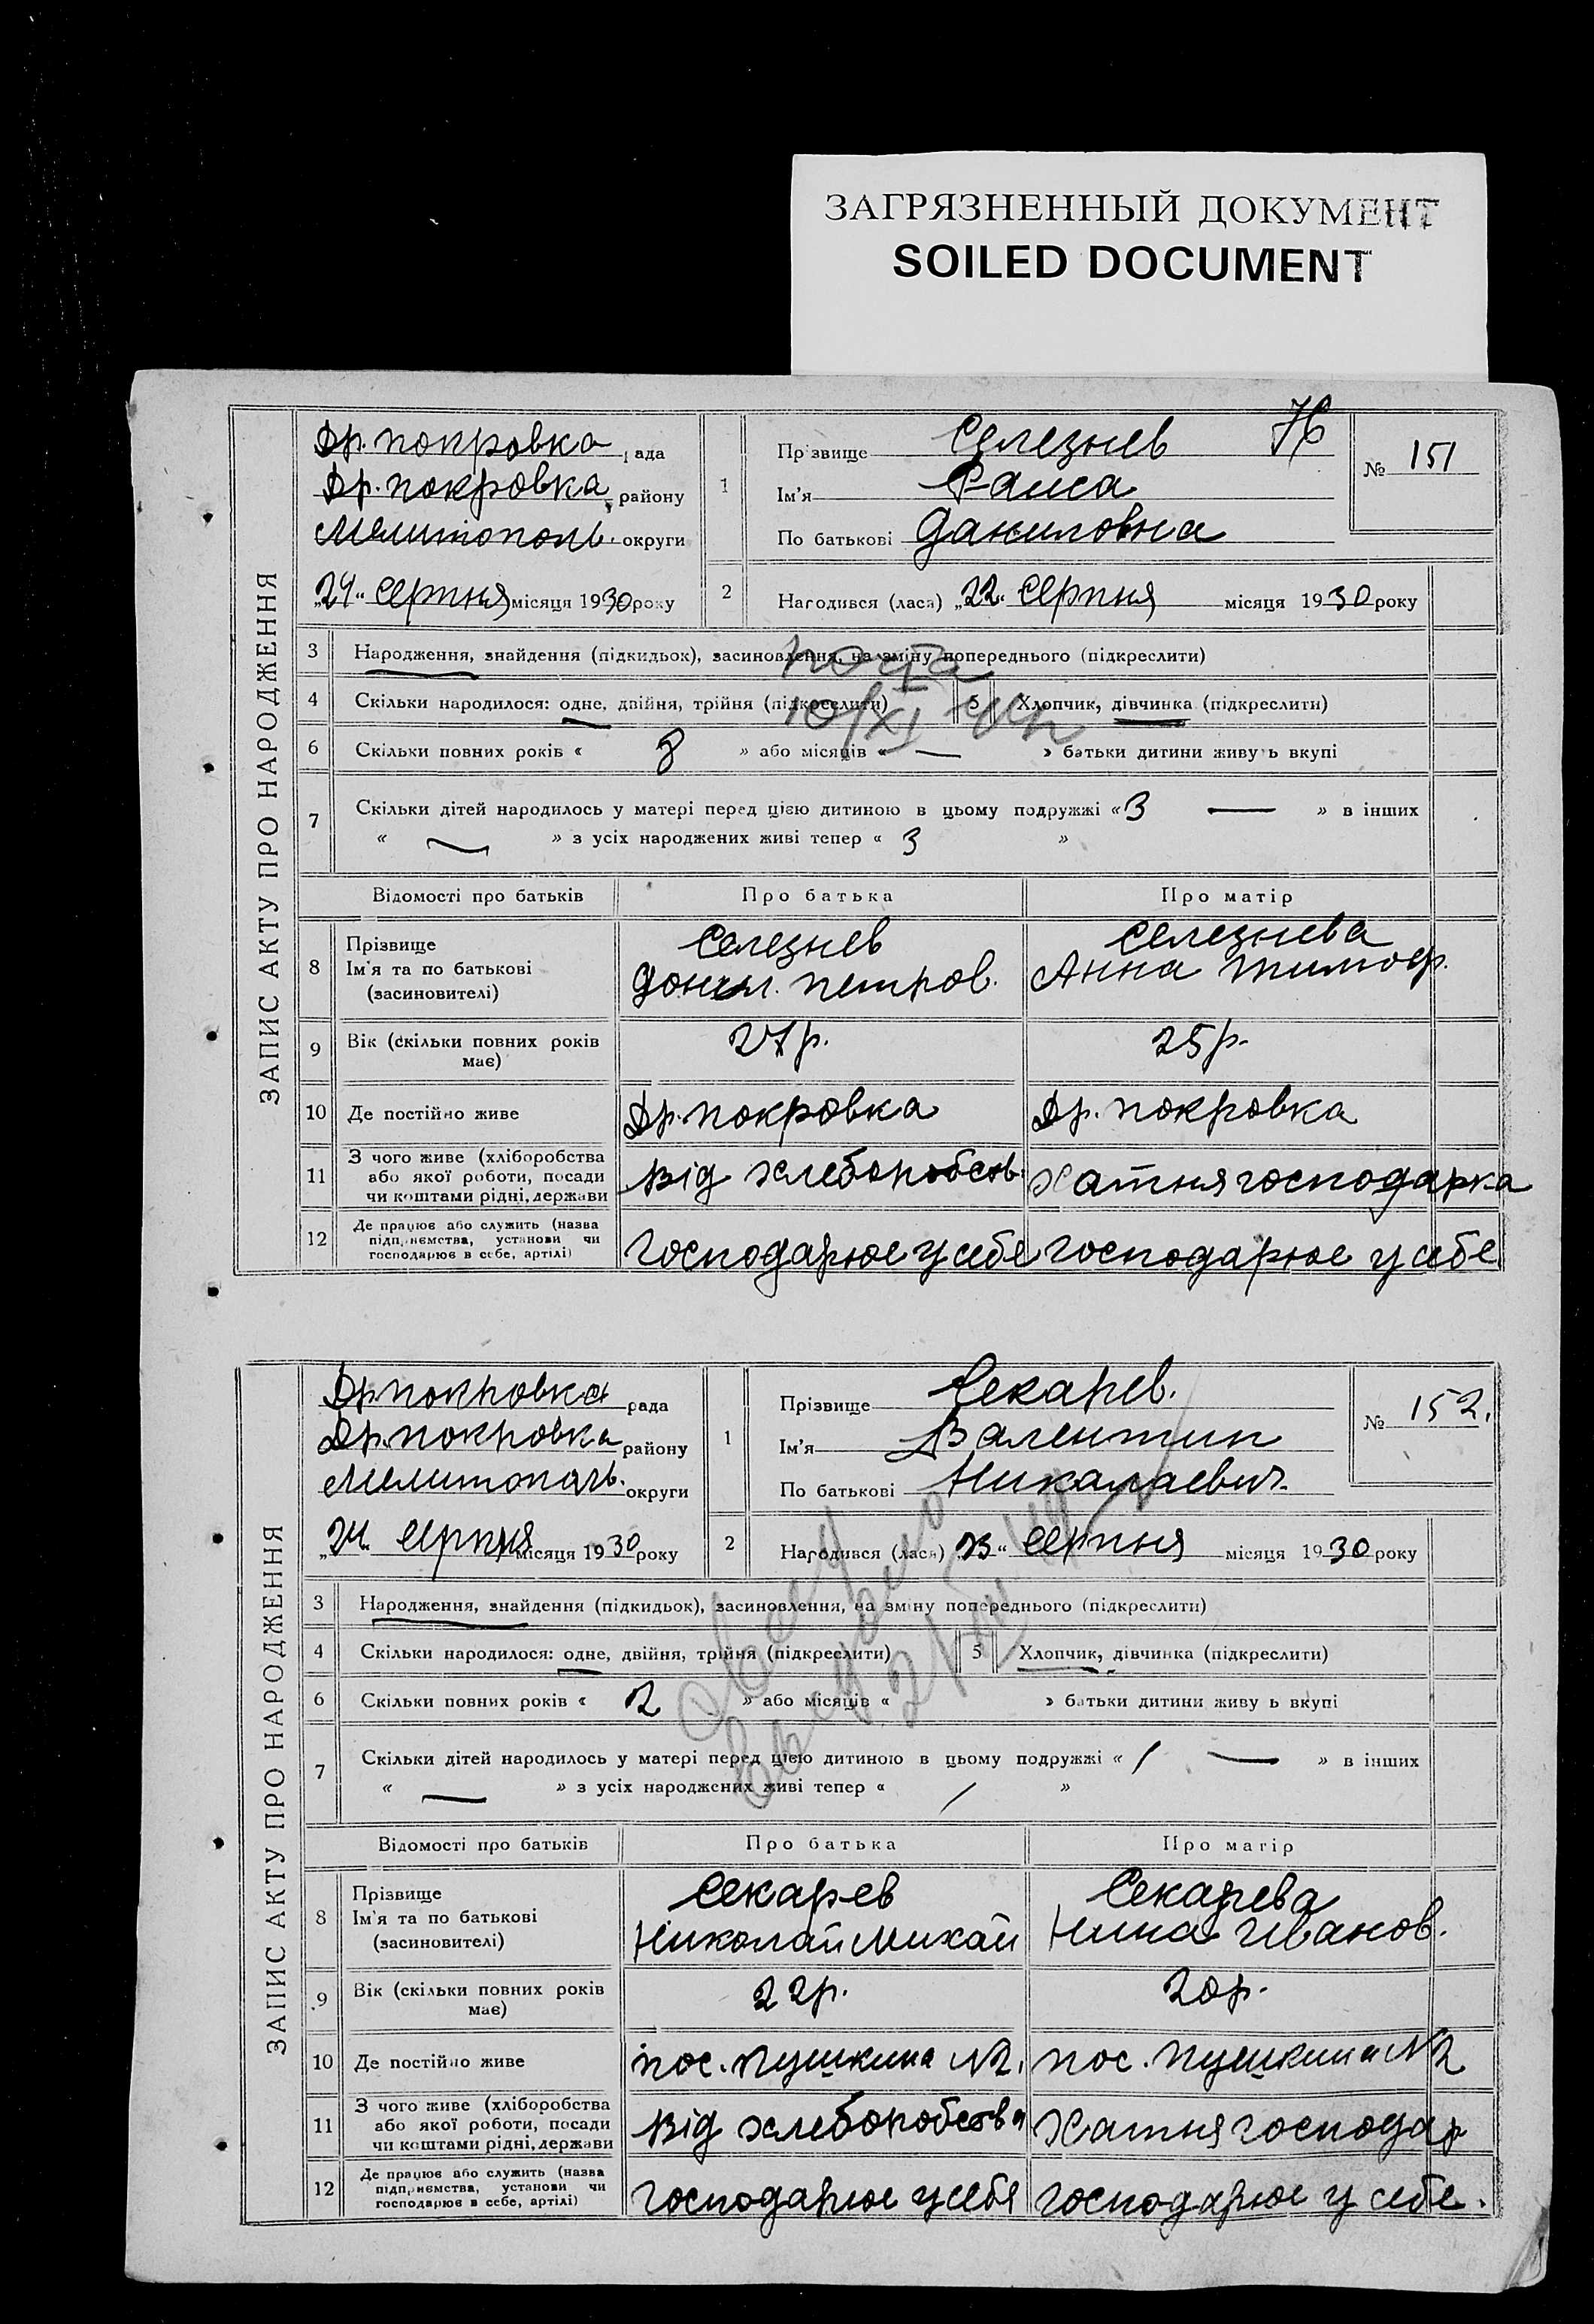 ЗАГРЯЗНЕННЫЙ ДОКУМЕНТ
SOILED DOCUMENT
ЗАПИС АКТУ ПРО НАРОДЖЕННЯ
Др. покровка рада
Др. покровка району
Мелитополь. округи
„24" серпня місяця 1930 року
1
Прізвище Селезнев
Ім'я Раиса
По батькові Даниловна
№ 151
2
Народився (лася) „22" серпня місяця 1930 року
3 Народження, знайдення (підкидьок), засиновлення, на зміну попереднього (підкреслити)
4 Скільки народилося: одне, двійня, трійня (підкреслити) 5 Хлопчик, дівчинка (підкреслити)
10/XI
6 Скільки повних років « 8 » або місяців « — » батьки дитини живуть вкупі
7 Скільки дітей народилось у матері перед цією дитиною в цьому подружжі « 3 — » в інших
« — » з усіх народжених живі тепер « 3 »
Відомості про батьків Про батька Про матір
8 Прізвище Ім'я та по батькові (засновителі)
Селезнев
Донил. петров.
Селезнева
Анна Тимоф.
9 Вік (скільки повних років має) 27 р. 25 р.
10 Де постійно живе Др. покровка Др. покровка
11 З чого живе (хліборобства або якої роботи, посади чи коштами рідні, держави
Від хлеборобств. Хатня господарка
12 Де працює або служить (назва підприємства, установи чи господарює в себе, артілі)
Господарює у себе господарює у себе
ЗАПИС АКТУ ПРО НАРОДЖЕННЯ
Др. покровка рада
Др. покровка району
Мелитополь. округи
„24" серпня місяця 1930 року
1
Прізвище Секарев.
Ім'я Валентин
По батькові Николаевич.
№ 152.
2
Народився (лася) „23" серпня місяця 1930 року
3 Народження, знайдення (підкидьок), засиновлення, на зміну попереднього (підкреслити)
4 Скільки народилося: одне, двійня, трійня (підкреслити) 5 Хлопчик, дівчинка (підкреслити)
6 Скільки повних років « 2 » або місяців « » батьки дитини живуть вкупі
7 Скільки дітей народилось у матері перед цією дитиною в цьому подружжі « 1 — » в інших
« — » з усіх народжених живі тепер « 1 »
Відомості про батьків Про батька Про матір
8 Прізвище Ім'я та по батькові (засиновителі)
Секарев
Николай Михай
Секарева
Нина Иванов.
9 Вік (скільки повних років має) 22 р. 20 р.
10 Де постійно живе пос. Пушкина №2. пос. Пушкина №2
11 З чого живе (хліборобства або якої роботи, посади чи коштами рідні, держави
Від хлеборобства Хатня господар
12 Де працює або служить (назва підприємства, установи чи господарює в себе, артілі)
Господарює у себя господарює у себе.